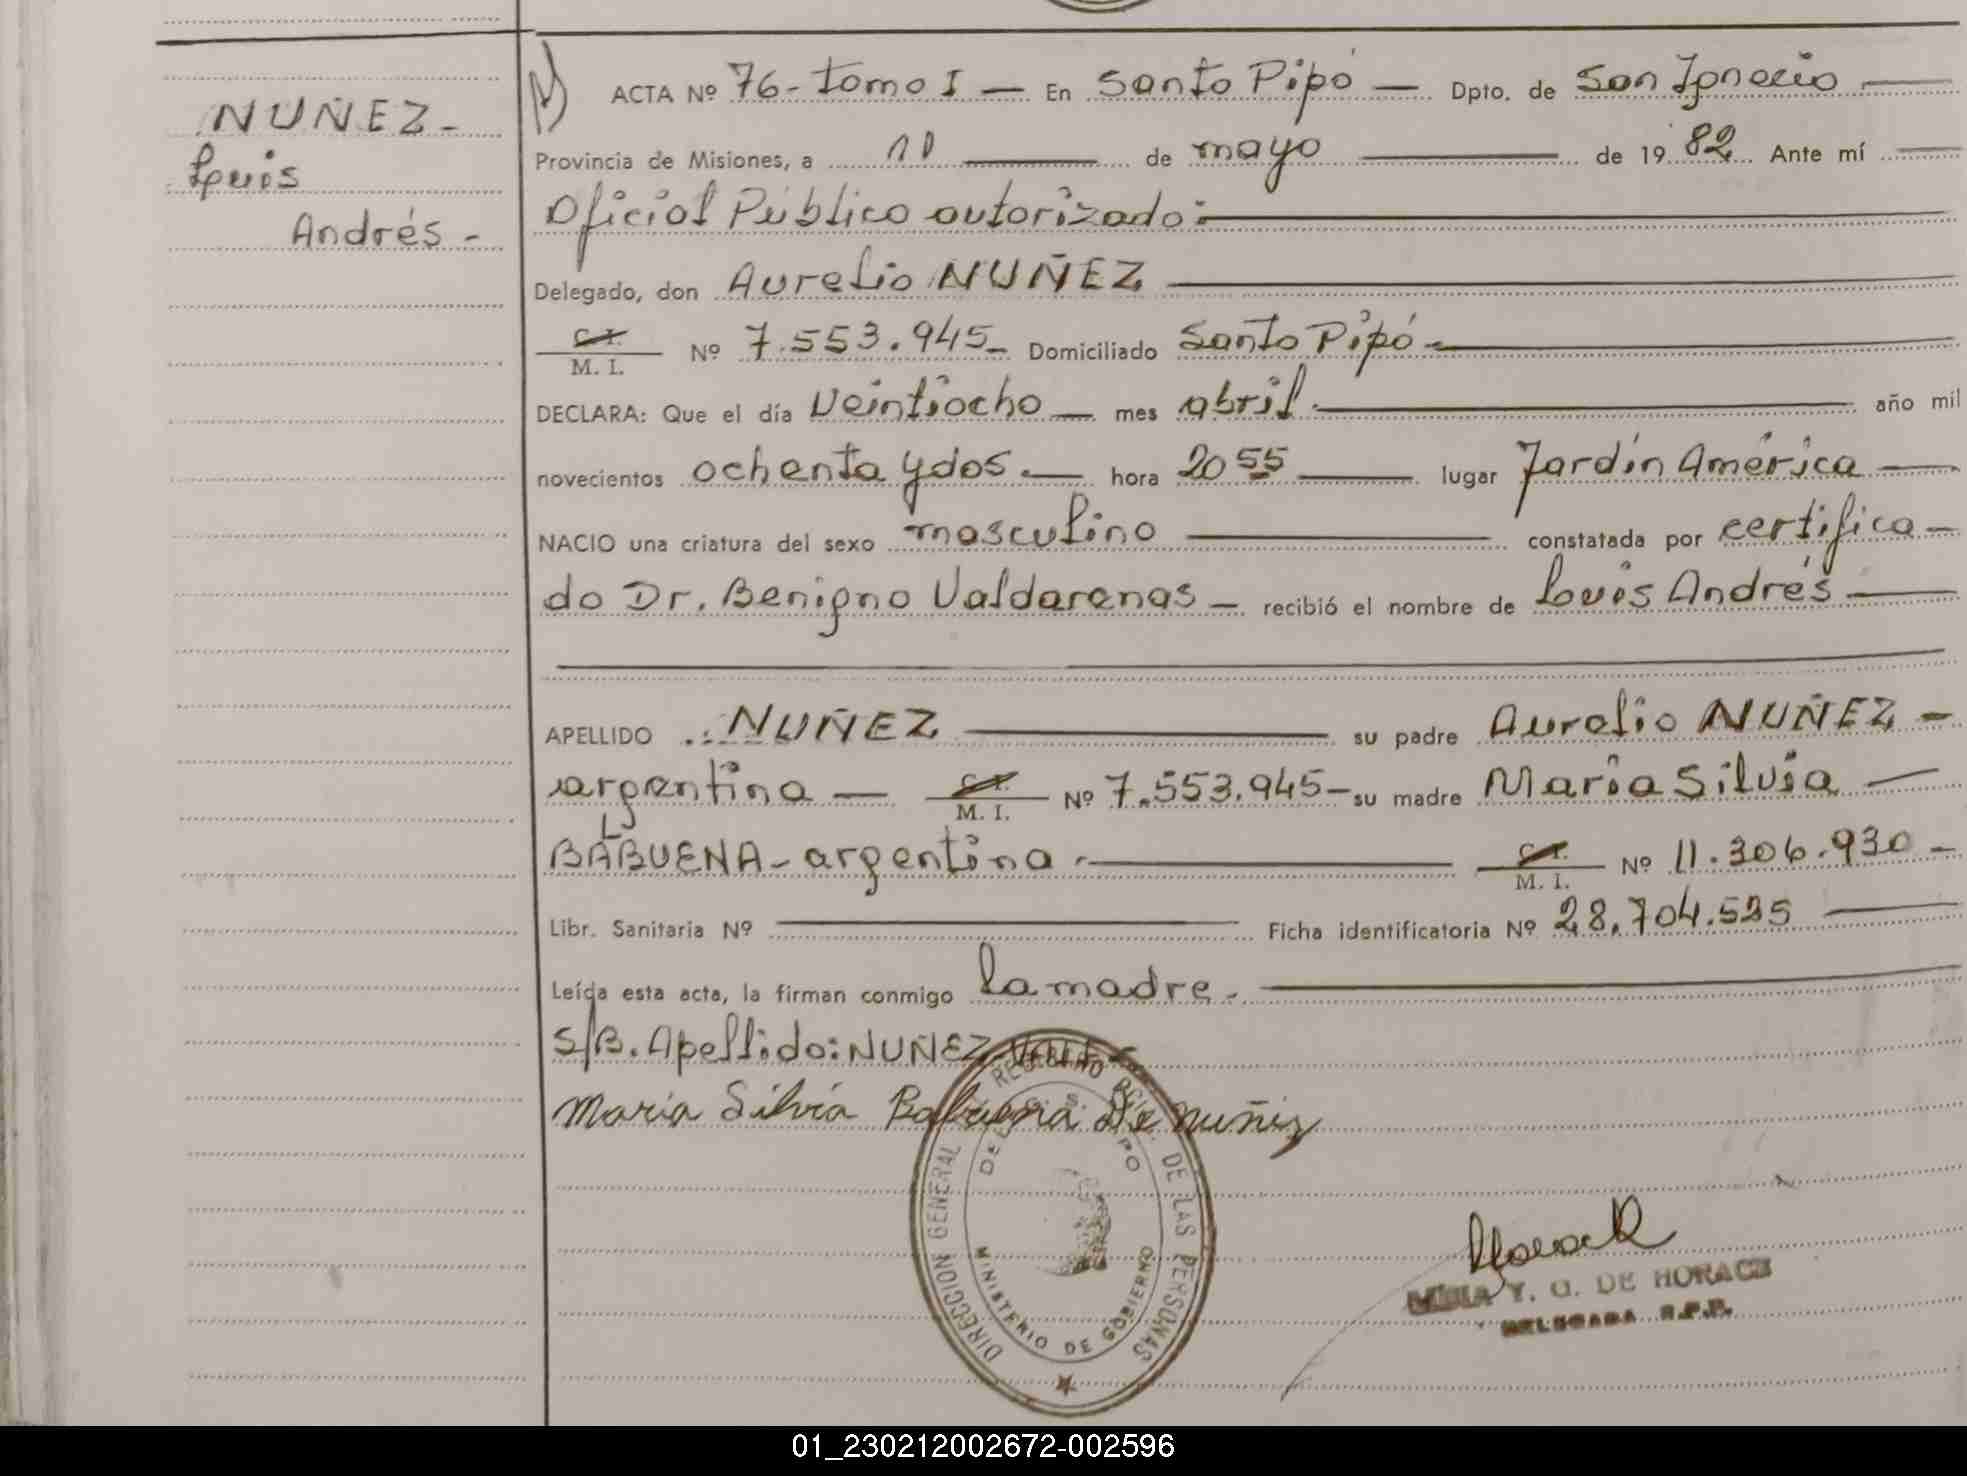 NUÑEZ-
Luis
Andrés-
ACTA Nº 76- tomo I — En Santo Pipó — Dpto. de San Ignacio
Provincia de Misiones, a 10 de mayo de 1982 Ante mí
Oficial Público autorizado:
Delegado, don Aurelio NUÑEZ
C. I.
M. I. Nº 7.553.945- Domiciliado Santo Pipó-
DECLARA: Que el día Veintiocho — mes abril año mil
novecientos ochenta y dos.— hora 20 55 lugar Jardín América
NACIO una criatura del sexo masculino constatada por certifica-
do Dr. Benigno Valdarenas - recibió el nombre de Luis Andrés
APELLIDO NUÑEZ su padre Aurelio NUÑEZ-
argentina — C. I. M. I. Nº 7.553.945- su madre María Silvia
L
BABUENA- argentina. C. I. M. I. Nº 11.306.930-
Libr. Sanitaria Nº Ficha identificatoria Nº 28.704.525
Leída esta acta, la firman conmigo la madre.
S/B. Apellido: NUÑEZ-Vale-
María Silvia Babuena De Nuñez
DIRECCION GENERAL REGISTRO PCIAL. DE LAS PERSONAS
DELEG. S. PIPO
MINISTERIO DE GOBIERNO
Y. G. DE HORACE
DELEGADA R.P.P.
01_230212002672-002596